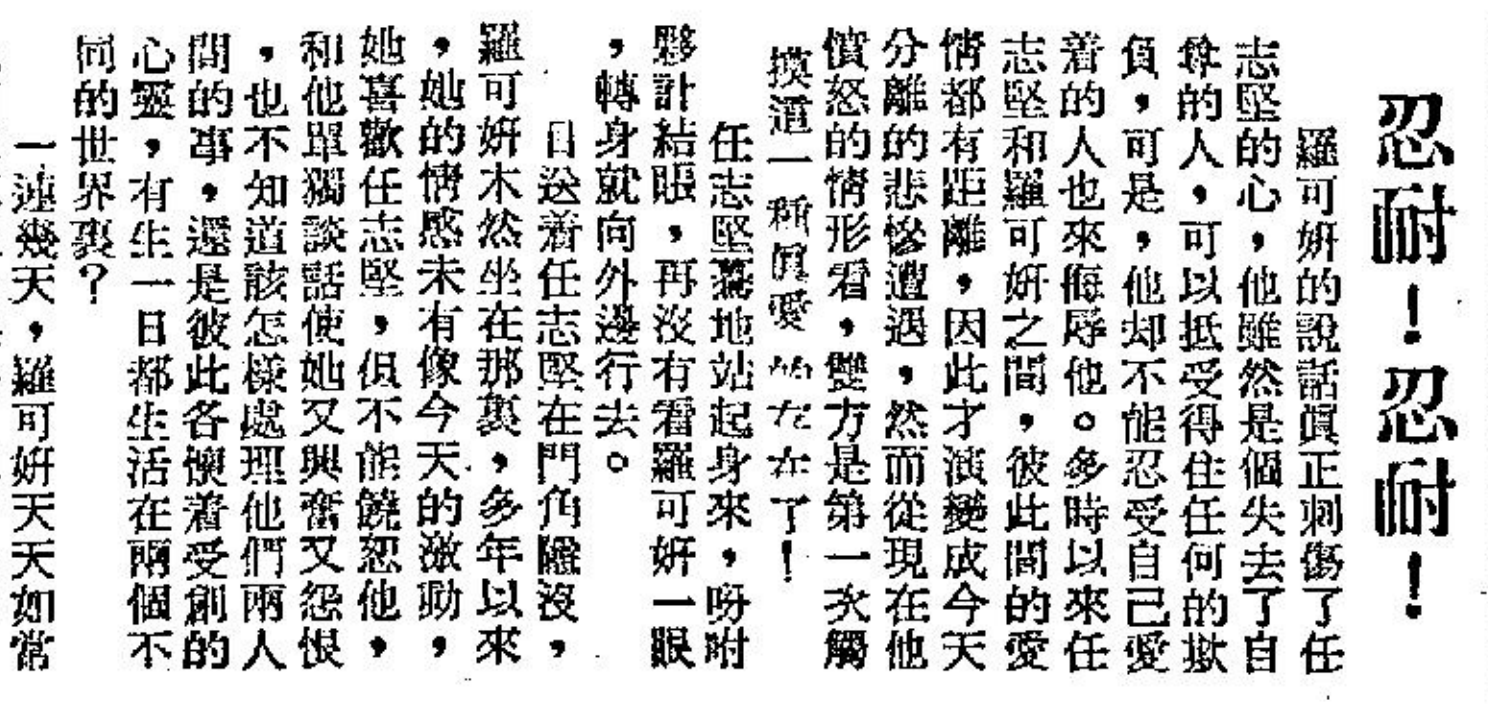 忍耐！忍耐！
羅可妍的說話眞正刺傷了任
志堅的心，他雖然是個失去了自
尊的人，可以抵受得住任何的欺
負，可是，他却不能忍受自己愛
着的人也來侮辱他。多時以來任
志堅和羅可妍之間，彼此間的愛
情都有距離，因此才演變成今天
分離的悲慘遭遇，然而從現在他
憤怒的情形看，雙方是第一次觸
摸道一種眞愛的存在了！
任志堅驀地站起身來，吩咐
夥計結賬，再沒有看羅可妍一眼
，轉身就向外邊行去。
目送着任志堅在門角隱沒，
羅可妍木然坐在那裏，多年以來
，她的情感未有像今天的激動，
她喜歡任志堅，但不能饒恕他，
和他單獨談話使她又興奮又怨恨
，也不知道該怎樣處理他們兩人
間的事，還是彼此各懷着受創的
心靈，有生一日都生活在兩個不
同的世界裏？
一連幾天，羅可妍天天如常